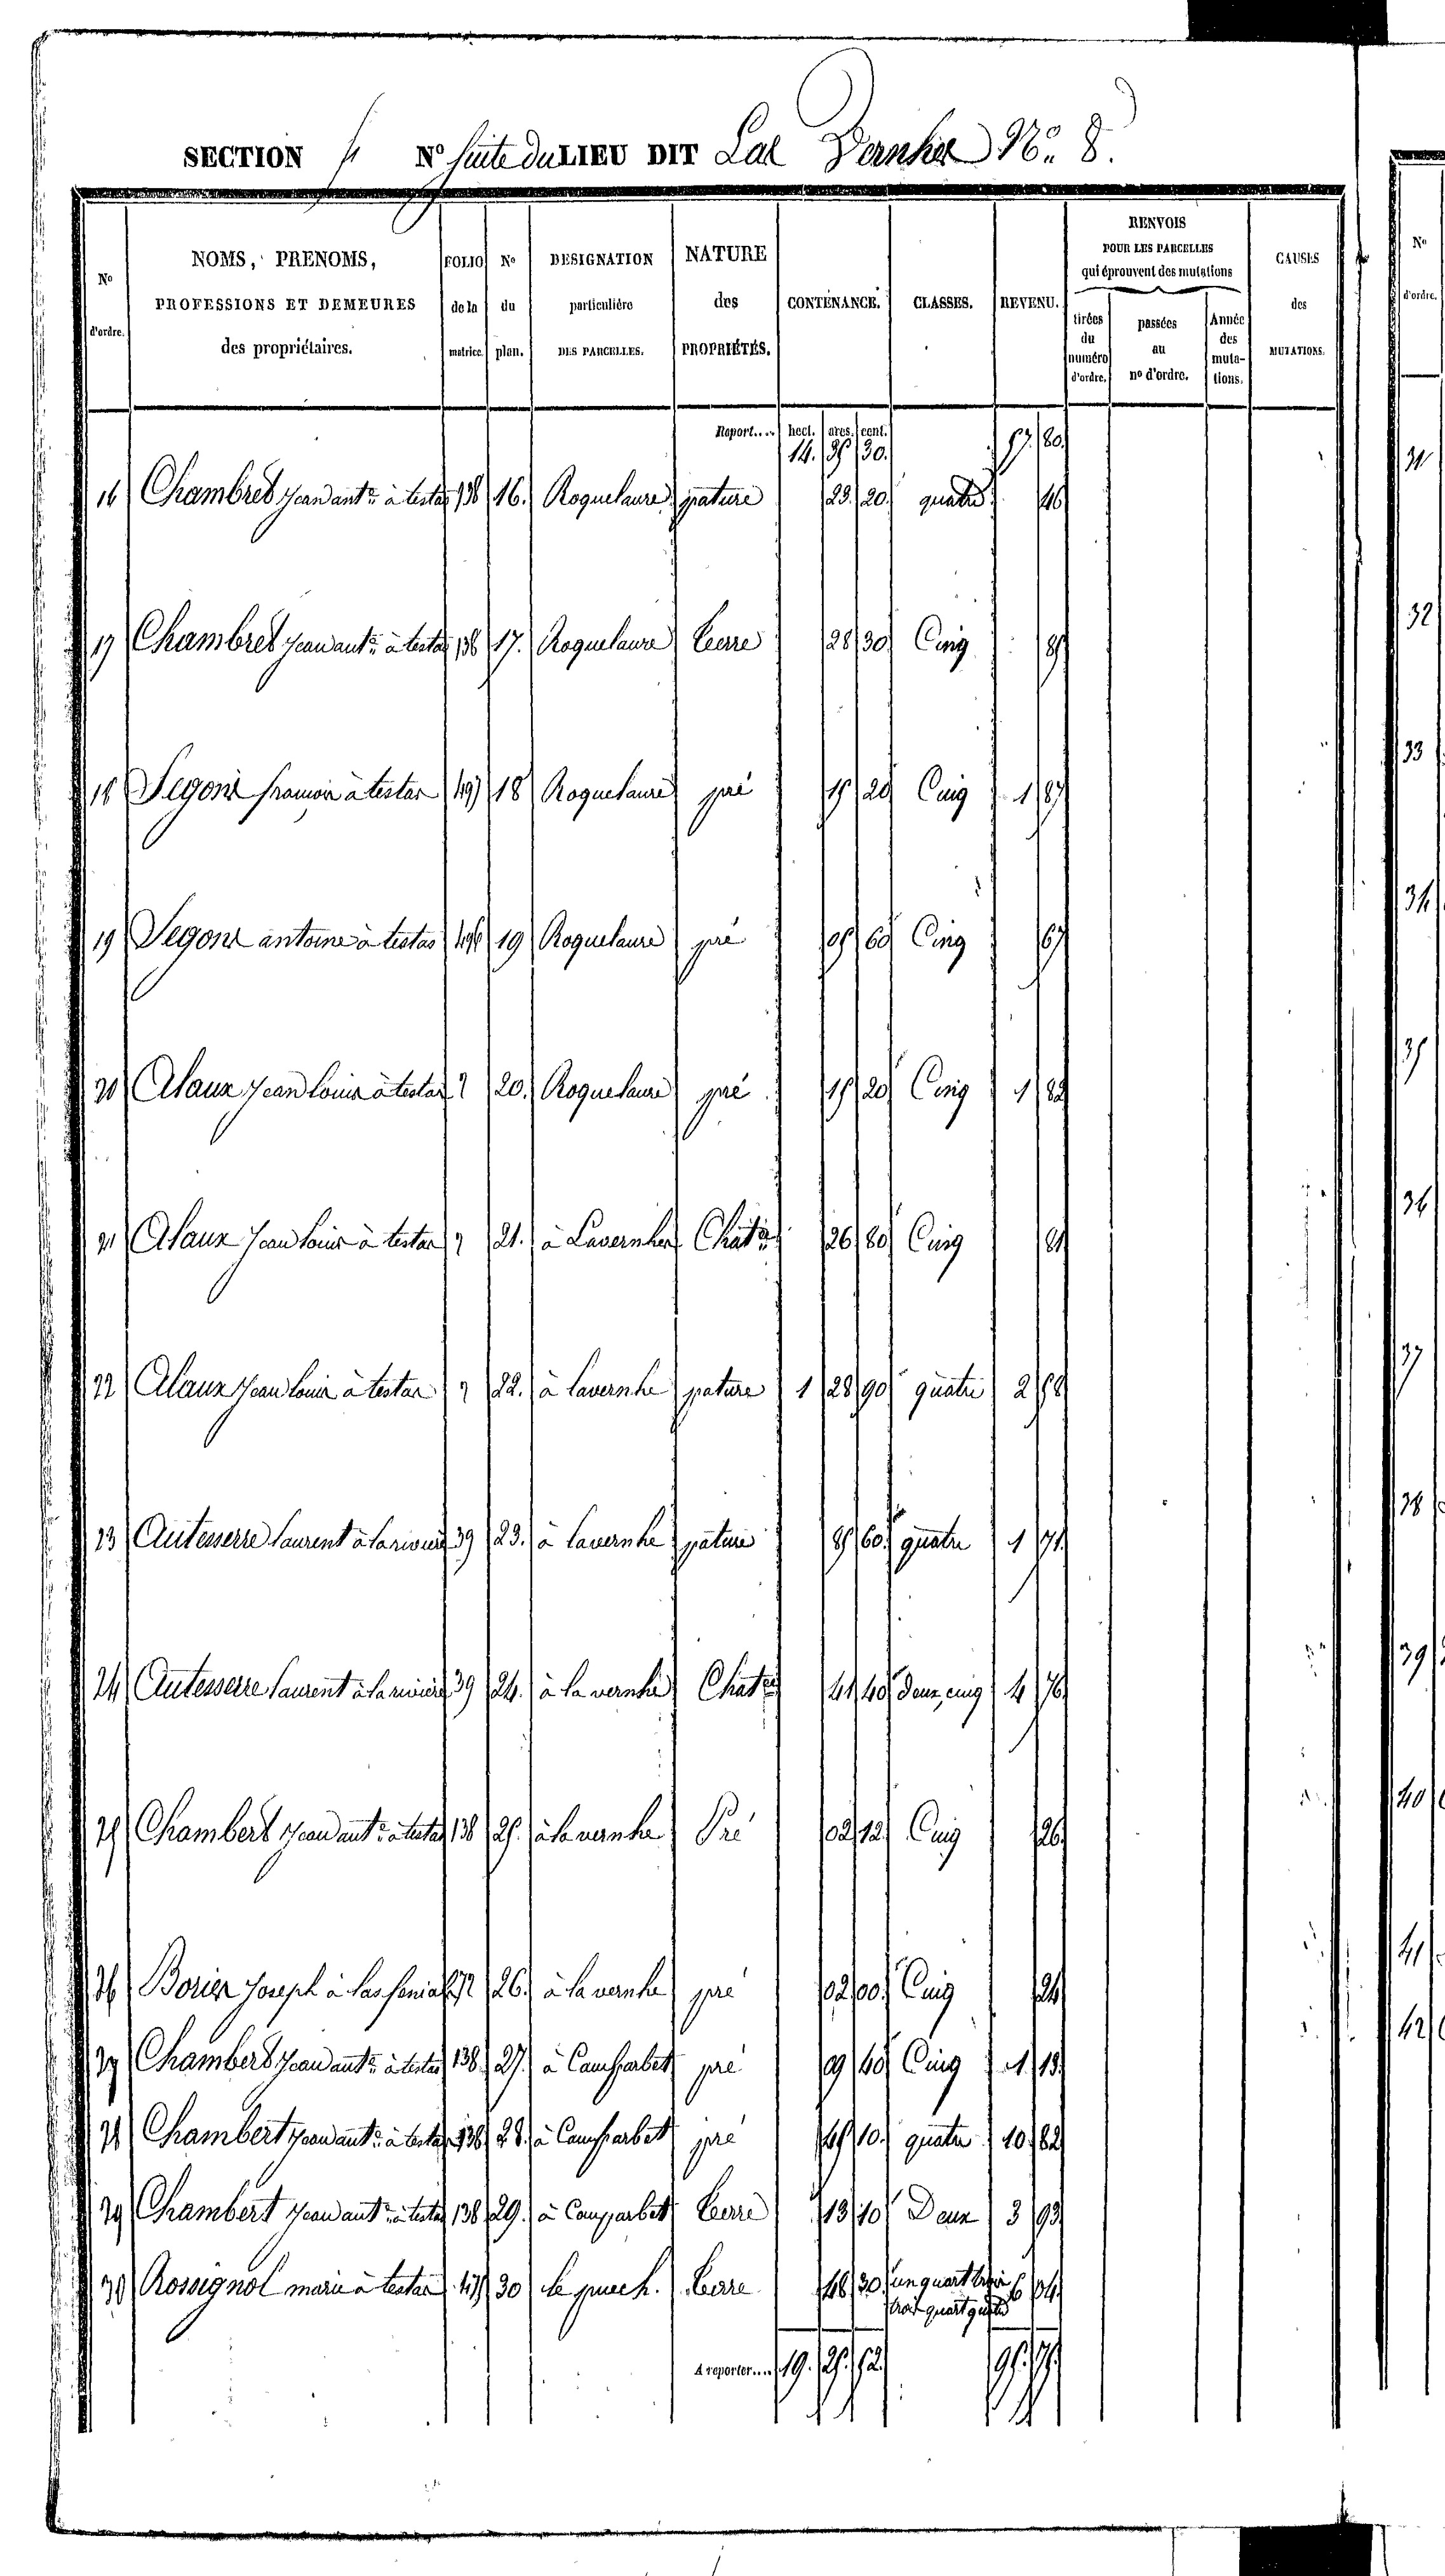 SECTION N° Suite du LIEU DIT Lac Vernhes N°. 8.
N° d'ordre.
NOMS, PRENOMS, PROFESSIONS ET DEMEURES des propriétaires.
FOLIO de la matrice.
N° du plan.
DESIGNATION particulière DES PARCELLES.
NATURE des PROPRIÉTÉS.
CONTENANCE.
CLASSES.
REVENU.
RENVOIS POUR LES PARCELLES qui éprouvent des mutations
tirées du numéro d'ordre.
passées au n° d'ordre.
Année des mutations.
CAUSES des MUTATIONS.
Report.... hect. ares. cent.
14. 35 30. 57. 80.
16 Chambret Jean ant.e à testas 138 16. Roquelaure pature 23. 20. quatre 46
17 Chambret Jean ant.e à testas 138 17. Roquelaure terre 28 30 Cinq 85
18 Segons francois à testas 497 18 Roquelaure pré 15 20 Cinq 1 87
19 Segons antoine à testas 496 19 Roquelaure pré 05 60 Cinq 67
20 Alaux Jean louis à testas 7 20. Roquelaure pré 15 20 Cinq 1 82
21 Alaux Jean louis à testas 7 21. à Lavernhe Chat.er 26 80 Cinq 81
22 Alaux Jean louis à testas 7 22. à lavernhe pature 1 28 90 quatre 2 58
23 Autesserre laurent à lariviere 39 23. à lavernhe pature 85 60 quatre 1 71
24 Autesserre laurent à lariviere 39 24. à la vernhe Chat.er 41 40 deux, cinq 4 76
25 Chambert Jean ant.e à testas 138 25. à la vernhe Pré 02 12 Cinq 26
26 Borier Joseph à 72 26. à la vernhe pré 02 00 Cinq 24
27 Chambert Jean ant.e à testas 138 27. à Camparbet pré 09 40 Cinq 1 13
28 Chambert Jean ant.e à testas 138 28. à Camparbet pré 45 10. quatre 10 82
29 Chambert Jean ant.e à testas 138 29. à Camparbet terre 13 10 Deux 3 93
30 Rossignol marie à testas 475 30 le puech. terre 48 30 un quart trois trois quart quatre 6 04
A reporter.... 19. 25. 52 95. 75
N° d'ordre.
31
32
33
34
35
36
37
38
39
40
41
42